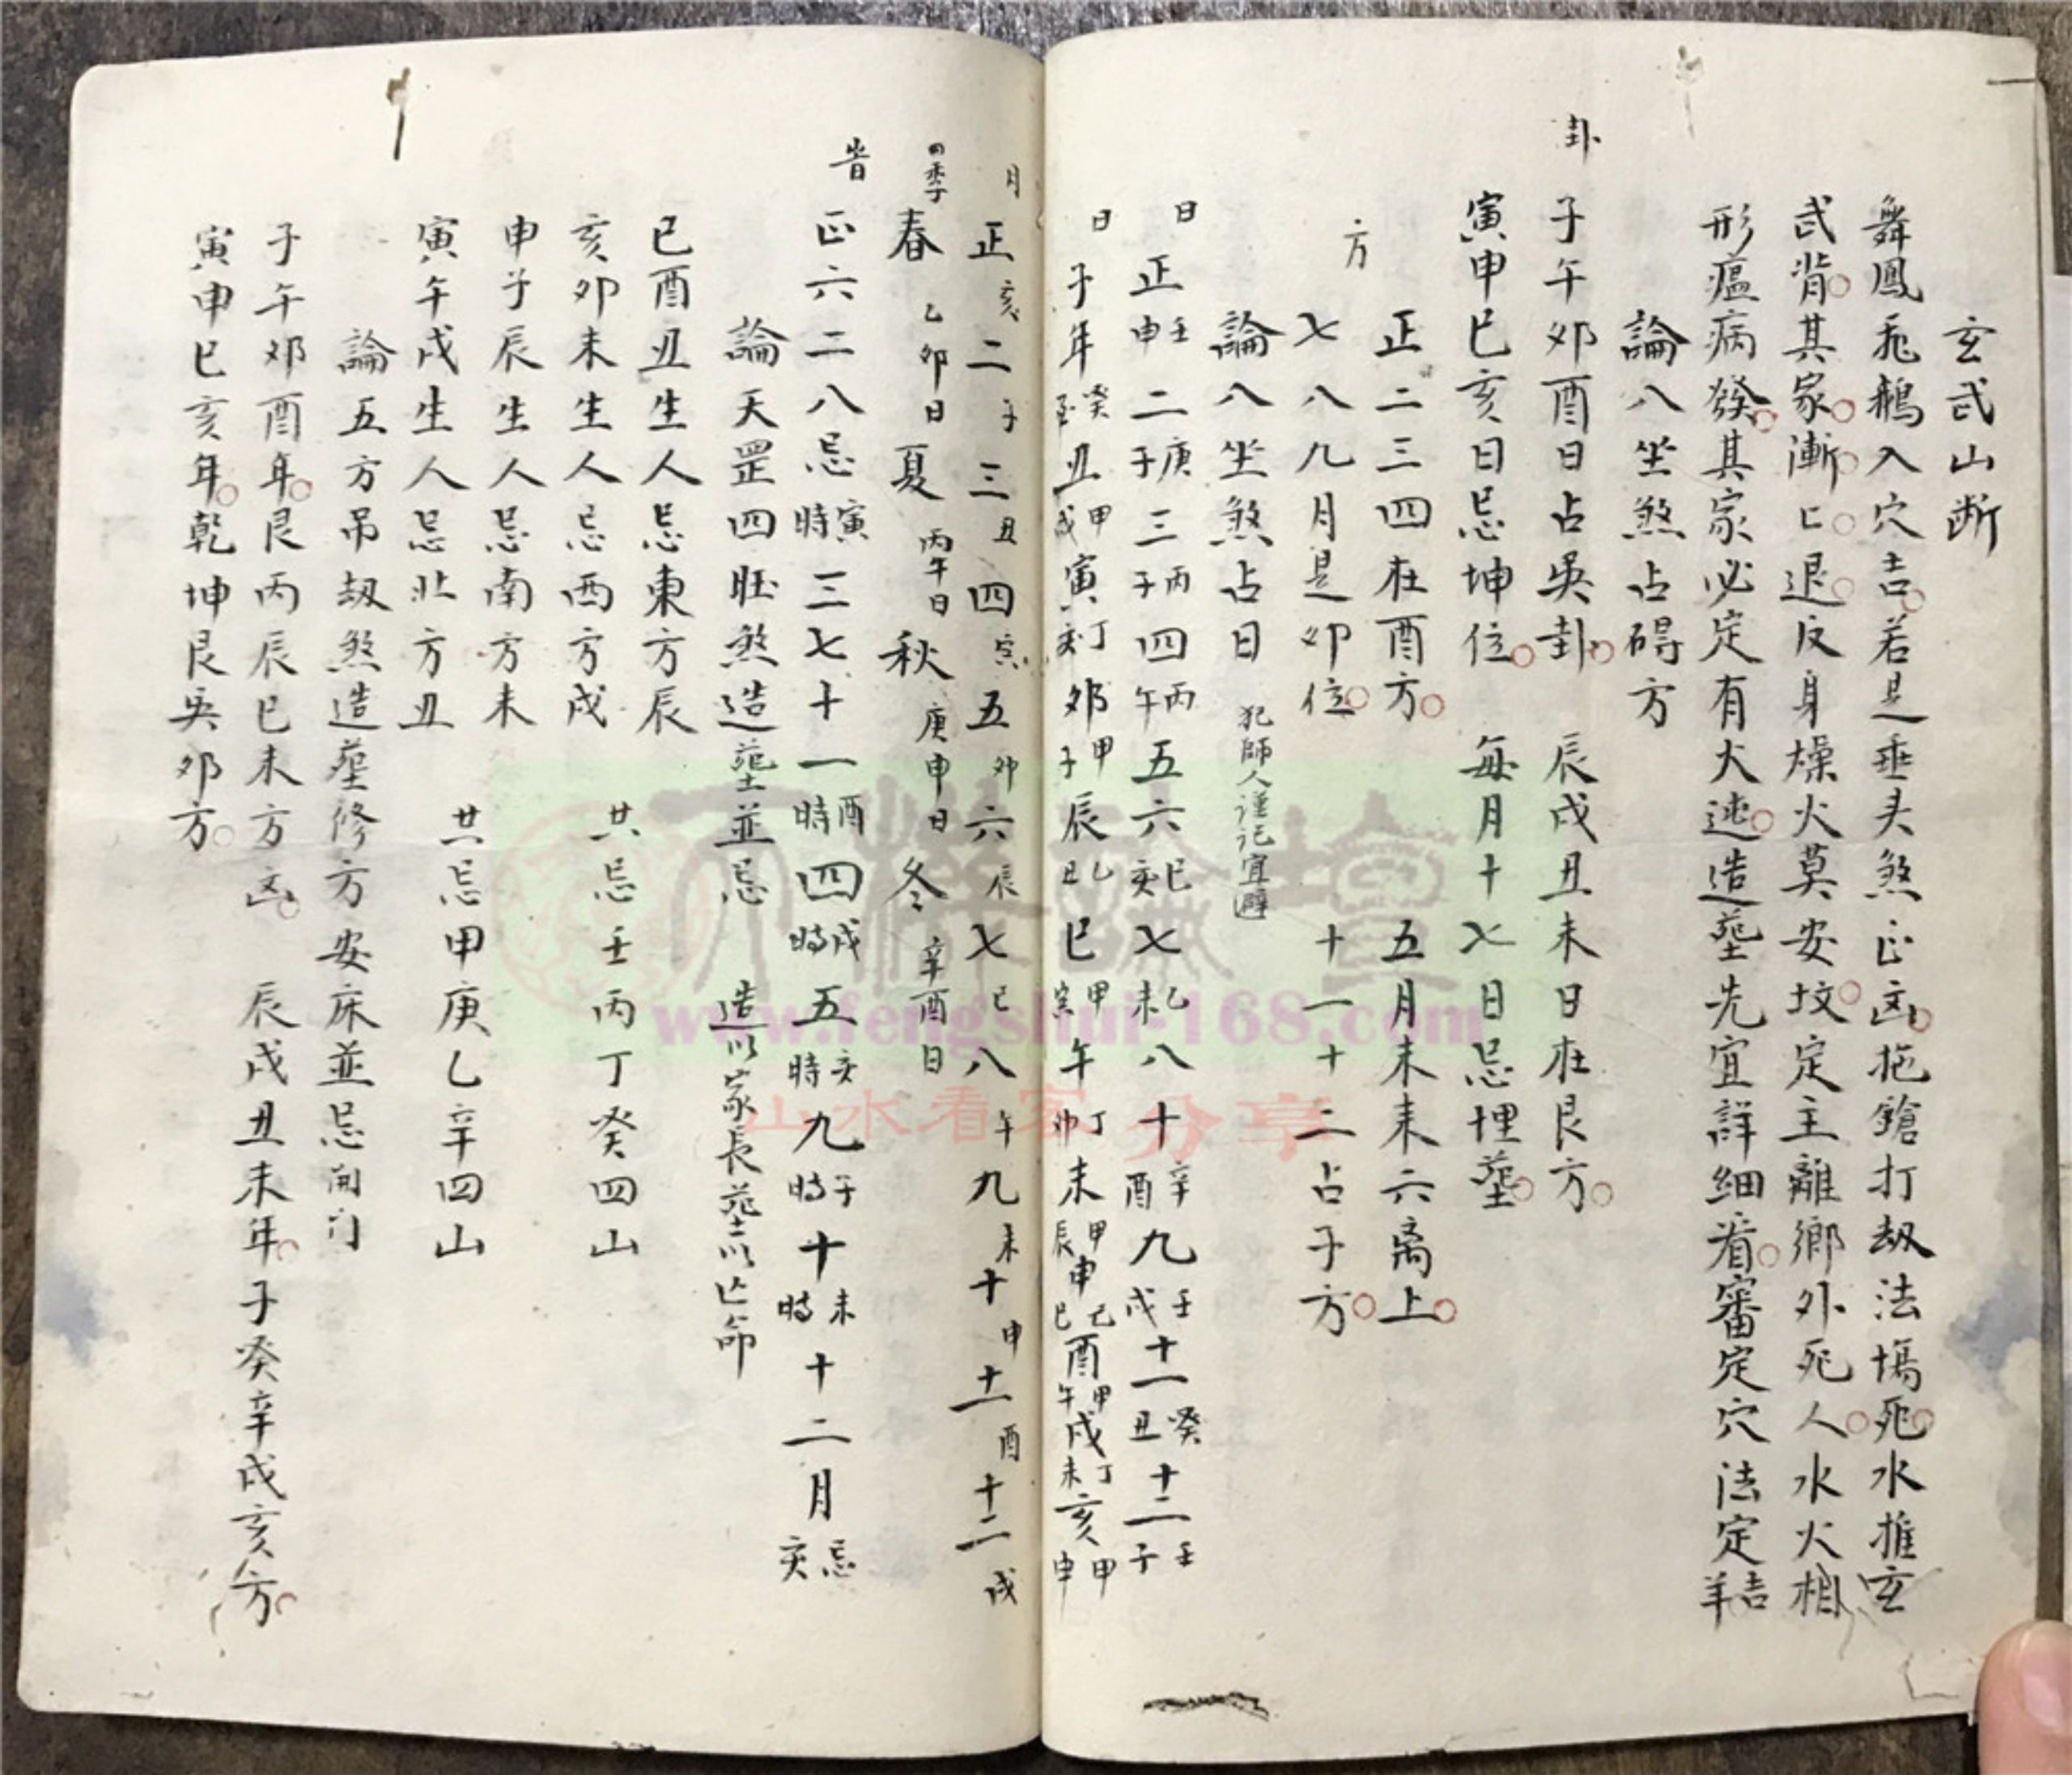 玄武山断
舞鳳飛鵝入穴吉若是垂头煞正凶拖鎗打刼法塲死水推玄
武背其家漸〻退反身燥火莫安坟定主離鄉外死人水火相
形瘟病發其家必定有火迍造塟先宜詳細看審定穴法定羊吉
論八坐煞占碍方
卦 子午卯酉日占吳卦 辰戌丑未日在艮方
寅申巳亥日忌坤位 每月十七日忌埋塟
正二三四在酉方 五月未来六离上
方 七八九月是卯位 十一十二占子方
論八坐煞占日 犯師人謹记宜避
日 正壬申二庚子三丙子四丙午五六己亥七乙未八十辛酉九壬戌十一癸丑十二壬子
日 子年癸丑甲戌寅丁亥卯甲子辰乙丑巳甲寅午丁卯未甲辰申乙巳酉甲午戌丁未亥甲申
月 正亥二子三丑四寅五卯六辰七巳八午九未十申十一酉十二戌
四季 春乙卯日夏丙午日秋庚申日冬辛酉日
時 正六二八忌寅時三七十一酉時四戌時五亥時九子時十未時十二月忌亥
論天罡四旺煞造塟並忌 造以家長塟以亡命
巳酉丑生人忌東方辰
亥卯未生人忌西方戌 共忌壬丙丁癸四山
申子辰生人忌南方未
寅午戌生人忌北方丑 共忌甲庚乙辛四山
論五方吊刼煞造塟修方安床並忌開门
子午卯酉年艮丙辰巳未方凶 辰戌丑未年子癸辛戌亥方
寅申巳亥年乾坤艮吳卯方
www.fengshui-168.com
山水看家分享